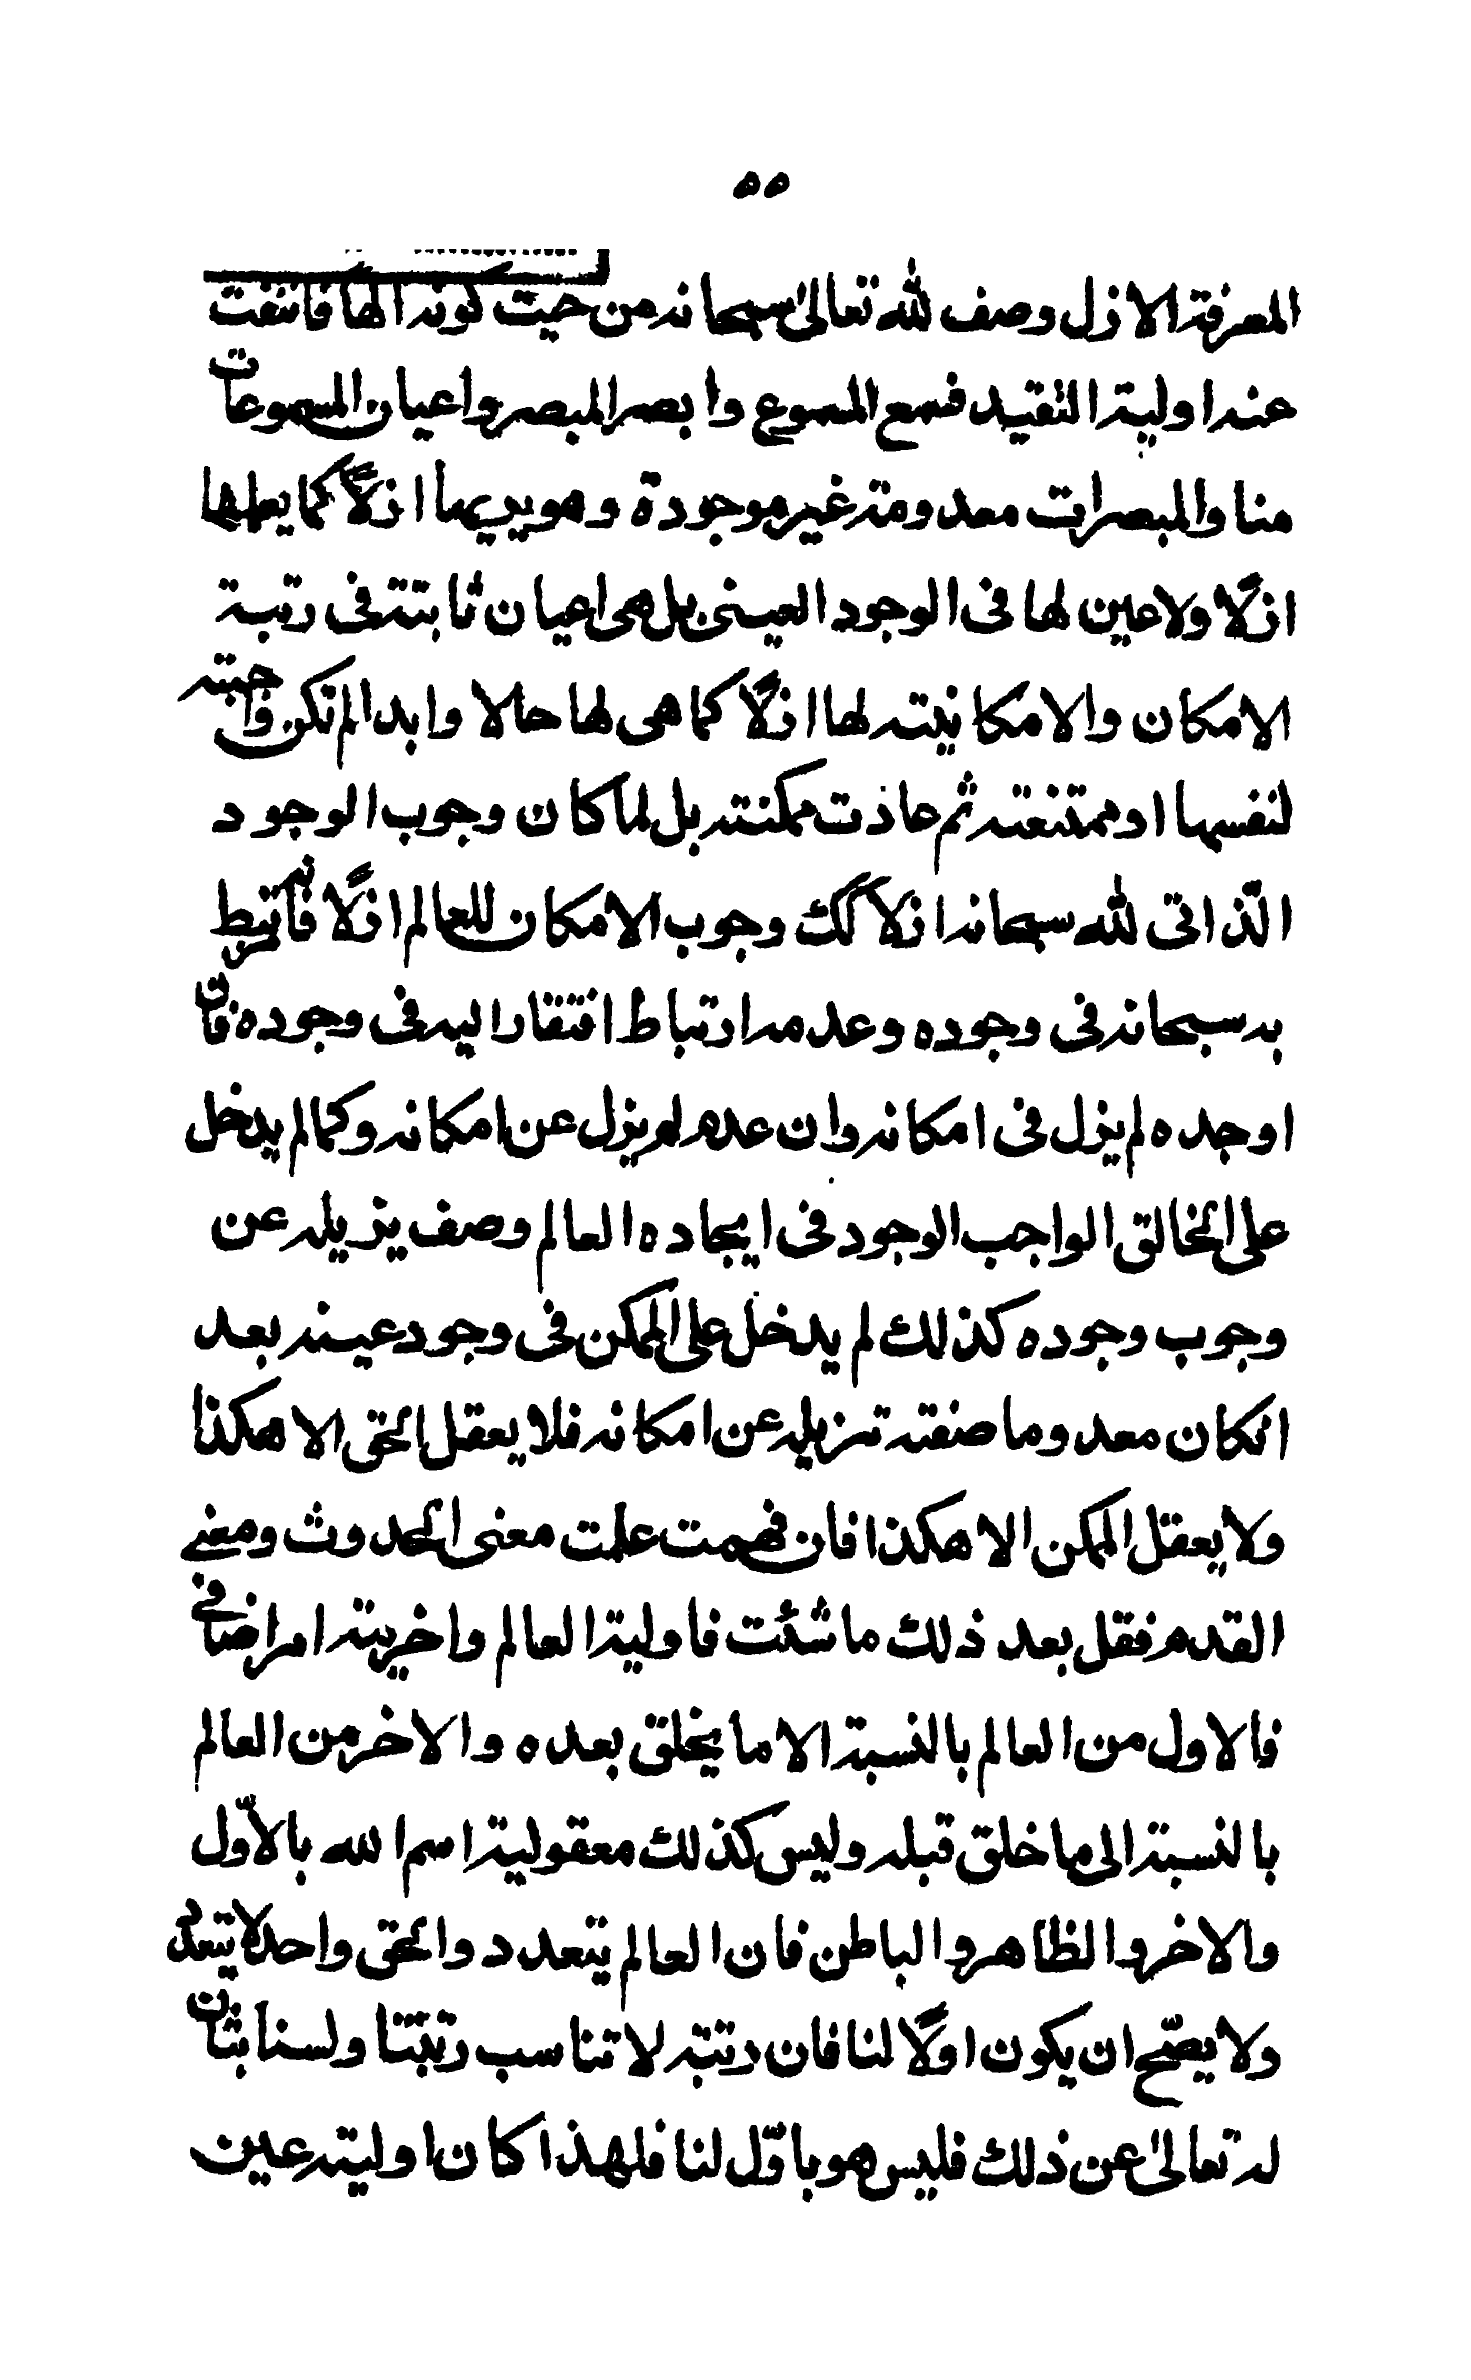 ٥٥
المعرفة الازل وصف لله تعالىٰ سبحانه من حيث كونه الهًا فانتفت
عنه اولية التقييد فسمع المسموع وابصر المبصر واعيان المسموعات
منا والمبصرات معدومة غير موجودة وهو يريها ازلًا كما يعلمها
ازلًا ولا عين لها فى الوجود العينى بل هى اعيان ثابتة فى رتبة
الامكان والامكانية لها ازلًا كما هى لها حالا وابدا لم تكن واجبة
لنفسها او ممتنعة ثم عاذت ممكنة بل لما كان وجوب الوجود
الذّاتى لله سبحانه ازلًا كك وجوب الامكان للعالم ازلًا فانه مرتبط
به سبحانه فى وجوده وعدمه ارتباط افتقار اليه فى وجوده فان
اوجده لم يزل فى امكانه وان عدم لم يزل عن امكانه وكما لم يدخل
على الخالق الواجب الوجود فى ايجاده العالم وصف يزيله عن
وجوب وجوده كذلك لم يدخل على الممكن فى وجود عينه بعد
انكان معدوما صفة تزيله عن امكانه فلا يعقل الحق الا هكذا
ولا يعقل الممكن الا هكذا فان فهمت علمت معنى الحدوث ومعنے
القدم فقل بعد ذلك ما شئت فاولية العالم واخريته امر اضافى
فالاول من العالم بالنسبة الا ما يخلق بعده والاخر من العالم
بالنسبة الى ما خلق قبله وليس كذلك معقولية اسم الله بالاوّل
والاخر والظاهر والباطن فان العالم يتعدد والحق واحد لا يتعدد
ولا يصّح ان يكون اولًا لنا فان رتبته لا تناسب رتبتنا ولسنا بثان
له تعالىٰ عن ذلك فليس هو باوّل لنا فلهذا كان اوليته عين